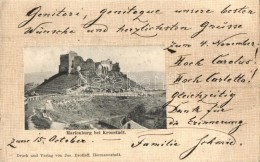 Genitori, genitoque unsere besten
Wünsche und herzlichsten Grüsse
zum 4. November
Hoch Carolus!
Hoch Carlotta!
Gleichzeitig
Dank für
die Erinnerung
zum 15. October.
Familie
Marienburg bei Kronstadt.
Druck und Verlag von Jos. Drotleff, Hermannstadt.